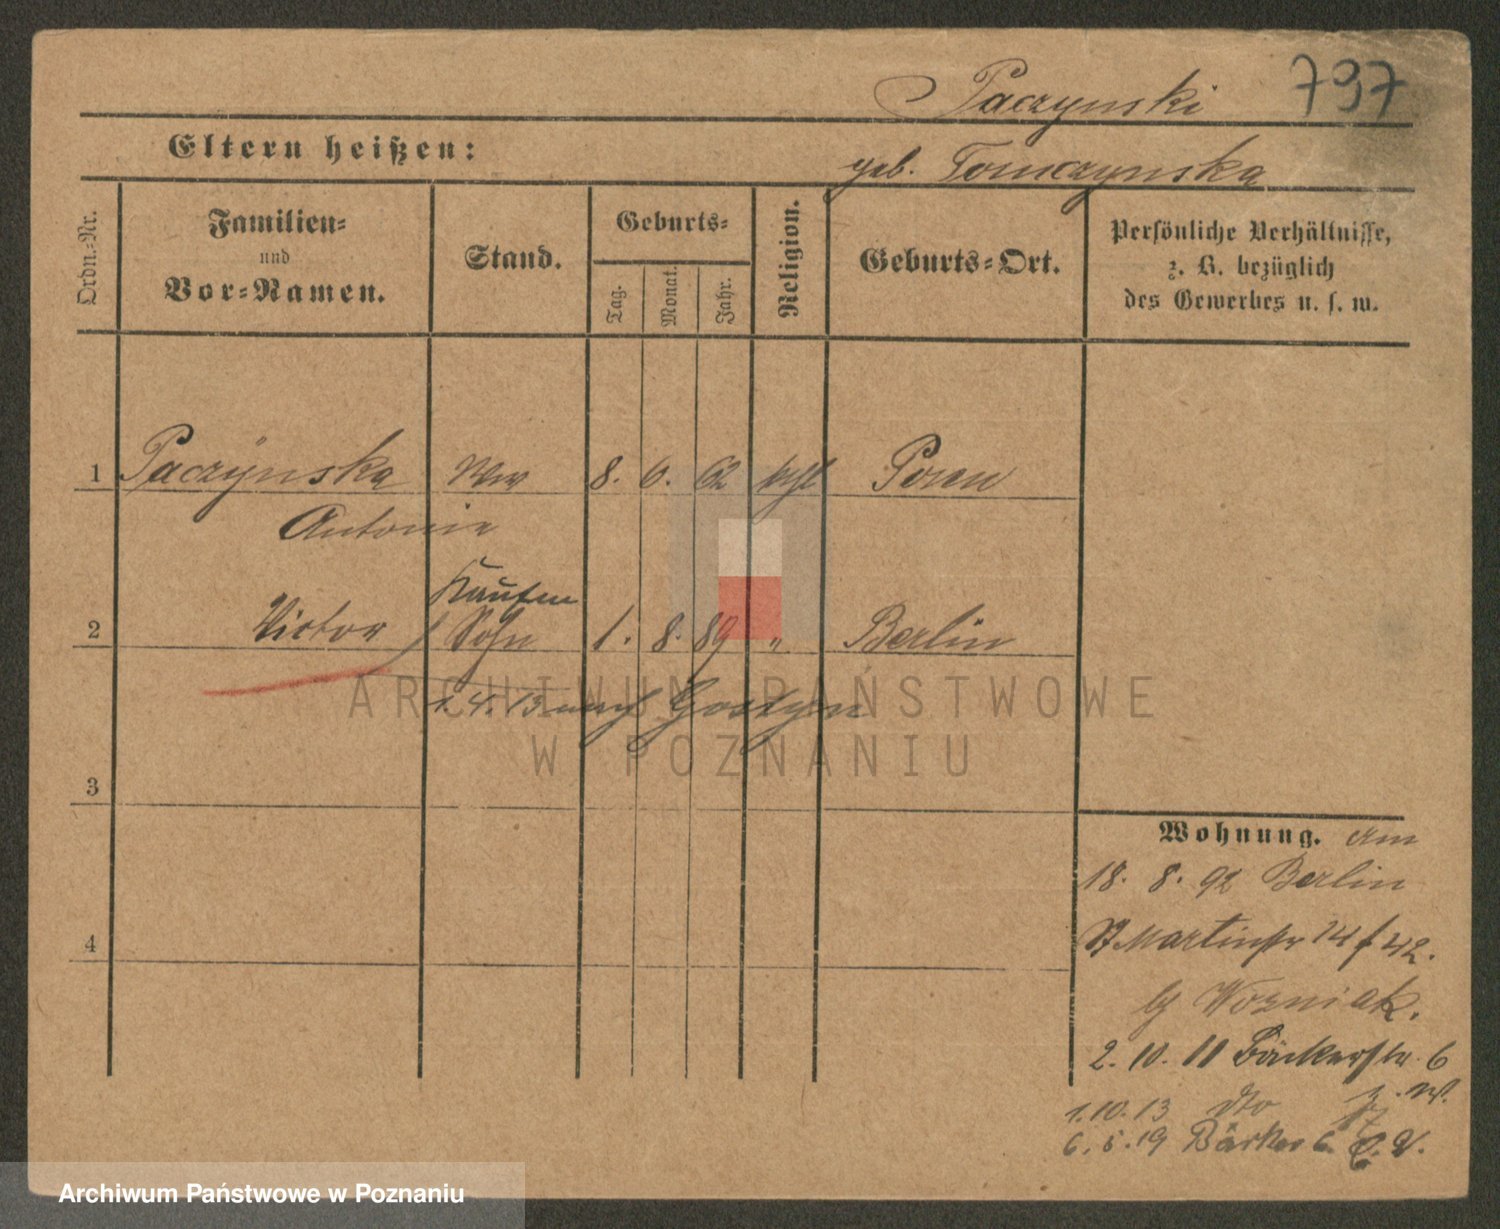 Paczynski 797
Eltern heißen:
geb. Tomczynska
Ordn.-Nr.
Familien-
und
Vor-Namen.
Stand.
Geburts-
Tag.
Monat.
Jahr.
Religion.
Geburts-Ort.
Persönliche Verhältnisse,
z. B. bezüglich
des Gewerbes u. s. w.
1 Paczynska Ww 8. 6. 62 kthl Posen
Antonie
Kaufm
2 Victor Sohn 1. 8. 89 " Berlin
1. 4. 13 nach Gostyn
ARCHIWUM PAŃSTWOWE
W POZNANIU
3
Wohnung. am
18. 8. 92 Berlin
St Martinstr 42.
4
Wozniak.
2. 10. 11 Bäckerstr. 6
1. 10. 13 dto
19 Bäcker 6.
Archiwum Państwowe w Poznaniu